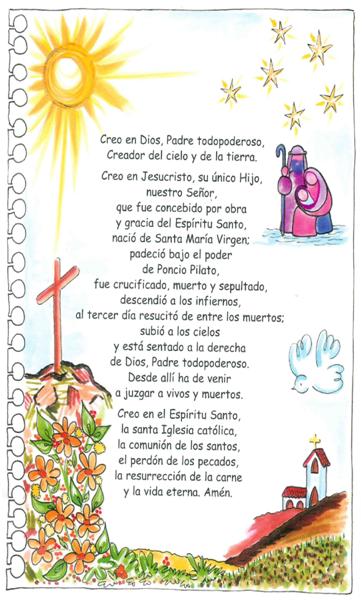 Creo en Dios, Padre todopoderoso,
Creador del cielo y de la tierra.
Creo en Jesucristo, su único Hijo,
nuestro Señor,
que fue concebido por obra
y gracia del Espíritu Santo,
nació de Santa María Virgen;
padeció bajo el poder
de Poncio Pilato,
fue crucificado, muerto y sepultado,
descendió a los infiernos,
al tercer día resucitó de entre los muertos;
subió a los cielos
y está sentado a la derecha
de Dios, Padre todopoderoso.
Desde allí ha de venir
a juzgar a vivos y muertos.
Creo en el Espíritu Santo,
la santa Iglesia católica,
la comunión de los santos,
el perdón de los pecados,
la resurrección de la carne
y la vida eterna. Amén.